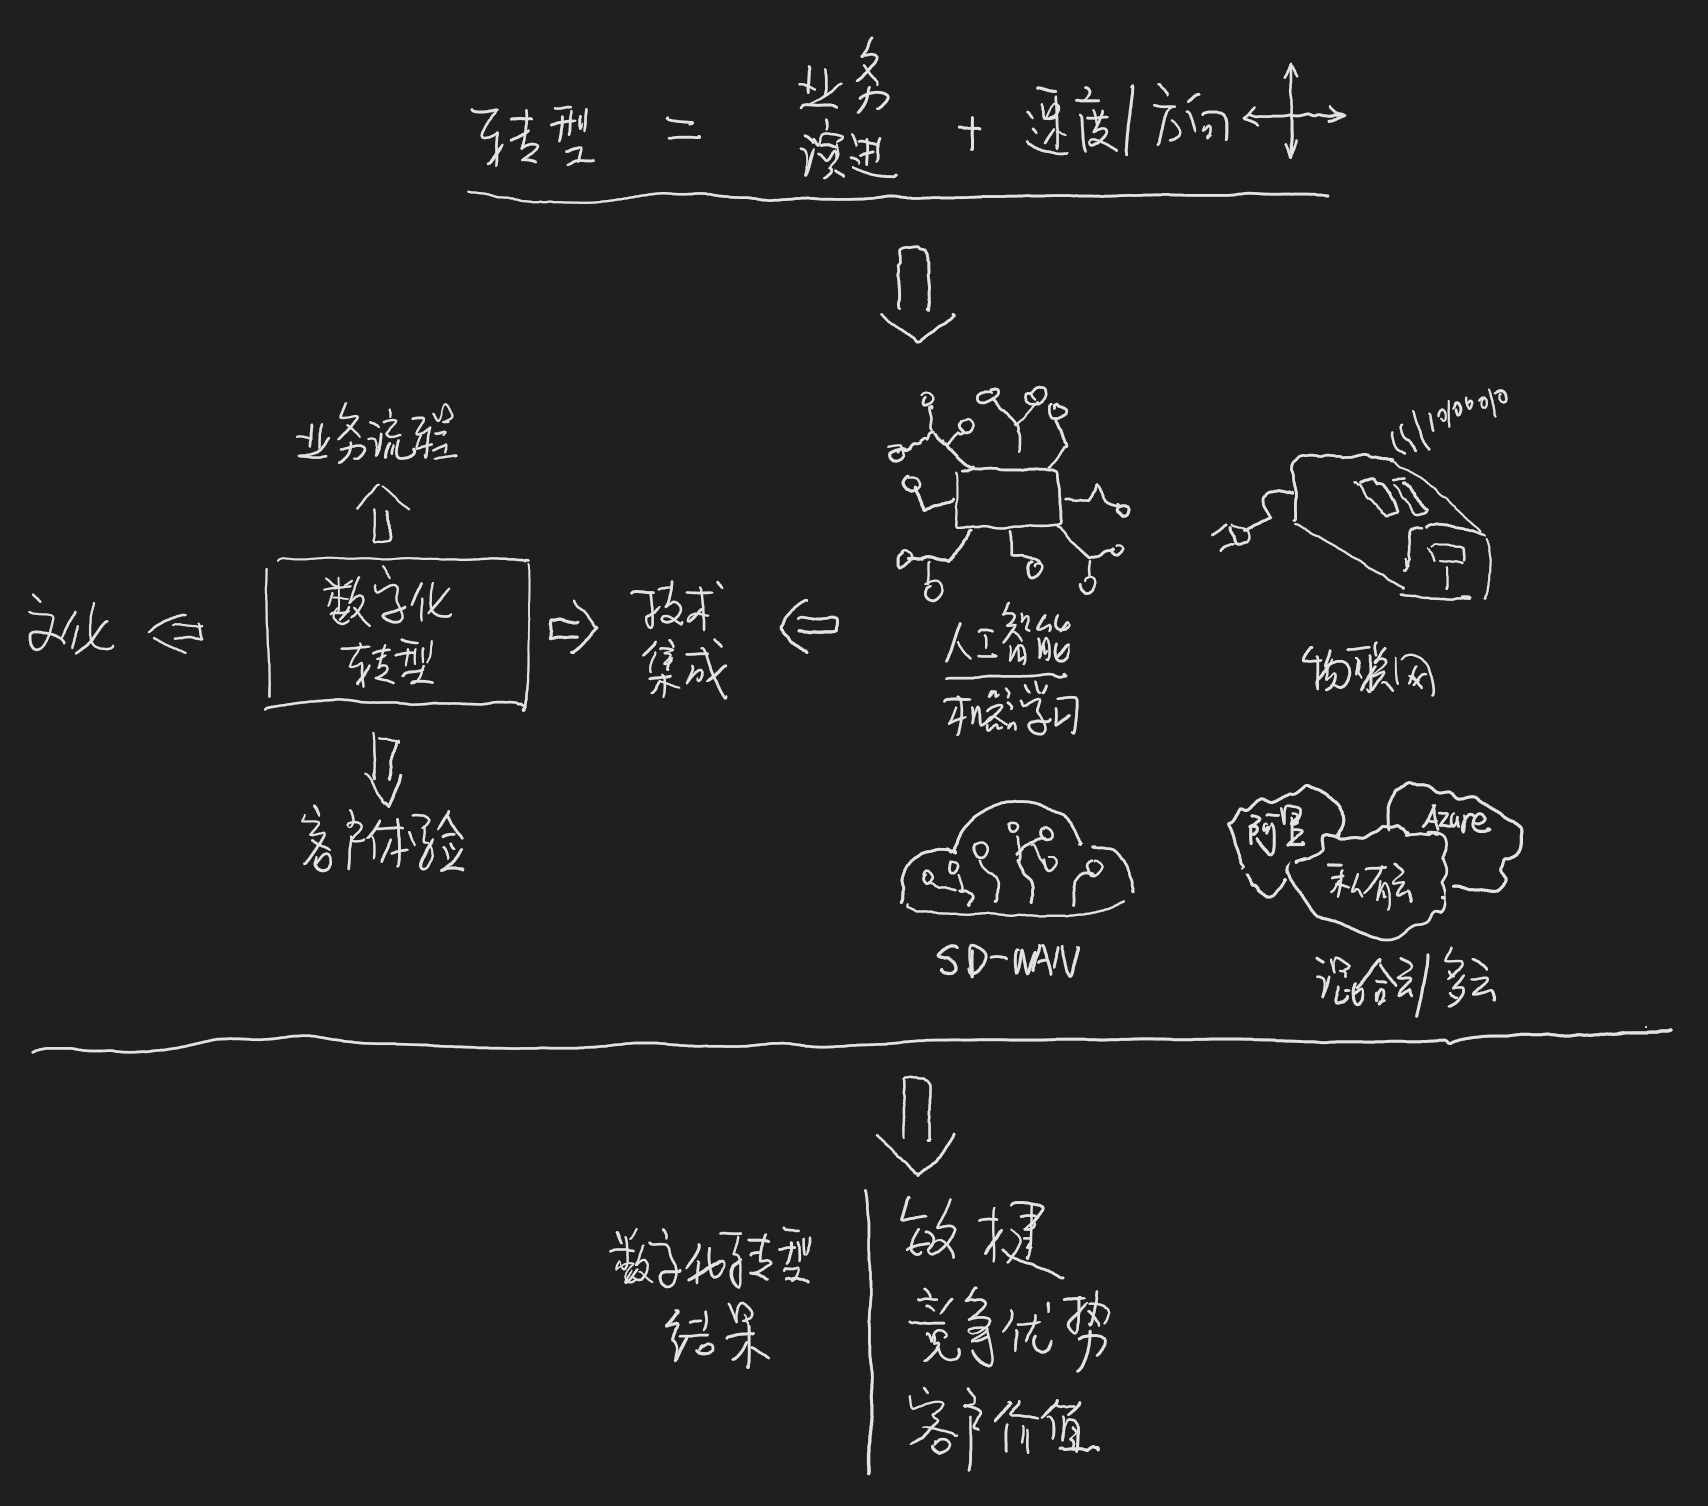 转型 = 业务演进 + 速度/方向
业务流程
文化
数字化
转型
技术
集成
人工智能
机器学习
物联网
10100010
客户体验
SD-WAN
阿里
Azure
私有云
混合云/多云
数字化转型
结果
敏捷
竞争优势
客户价值